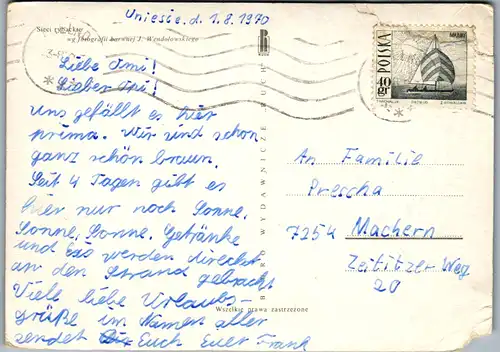 Unieście, d. 1.8.1970
Sieci rybackie
wg fotografii barwnej J. Wendołowskiego
Liebe Omi!
Lieber Opi!
uns gefällt es hier
prima. Wir sind schon
ganz schön braun.
Seit 4 Tagen gibt es
hier nur noch Sonne,
Sonne, Sonne. Getränke
und Eis werden direkt
an den Strand gebracht
Viele liebe Urlaubs-
grüße im Namen aller
sendet Euch Euer Frank
BIURO WYDAWNICZE RUCH
POLSKA
40 gr
An Familie
Prescha
7254 Machern
Zeititzer Weg
20
Wszelkie prawa zastrzeżone